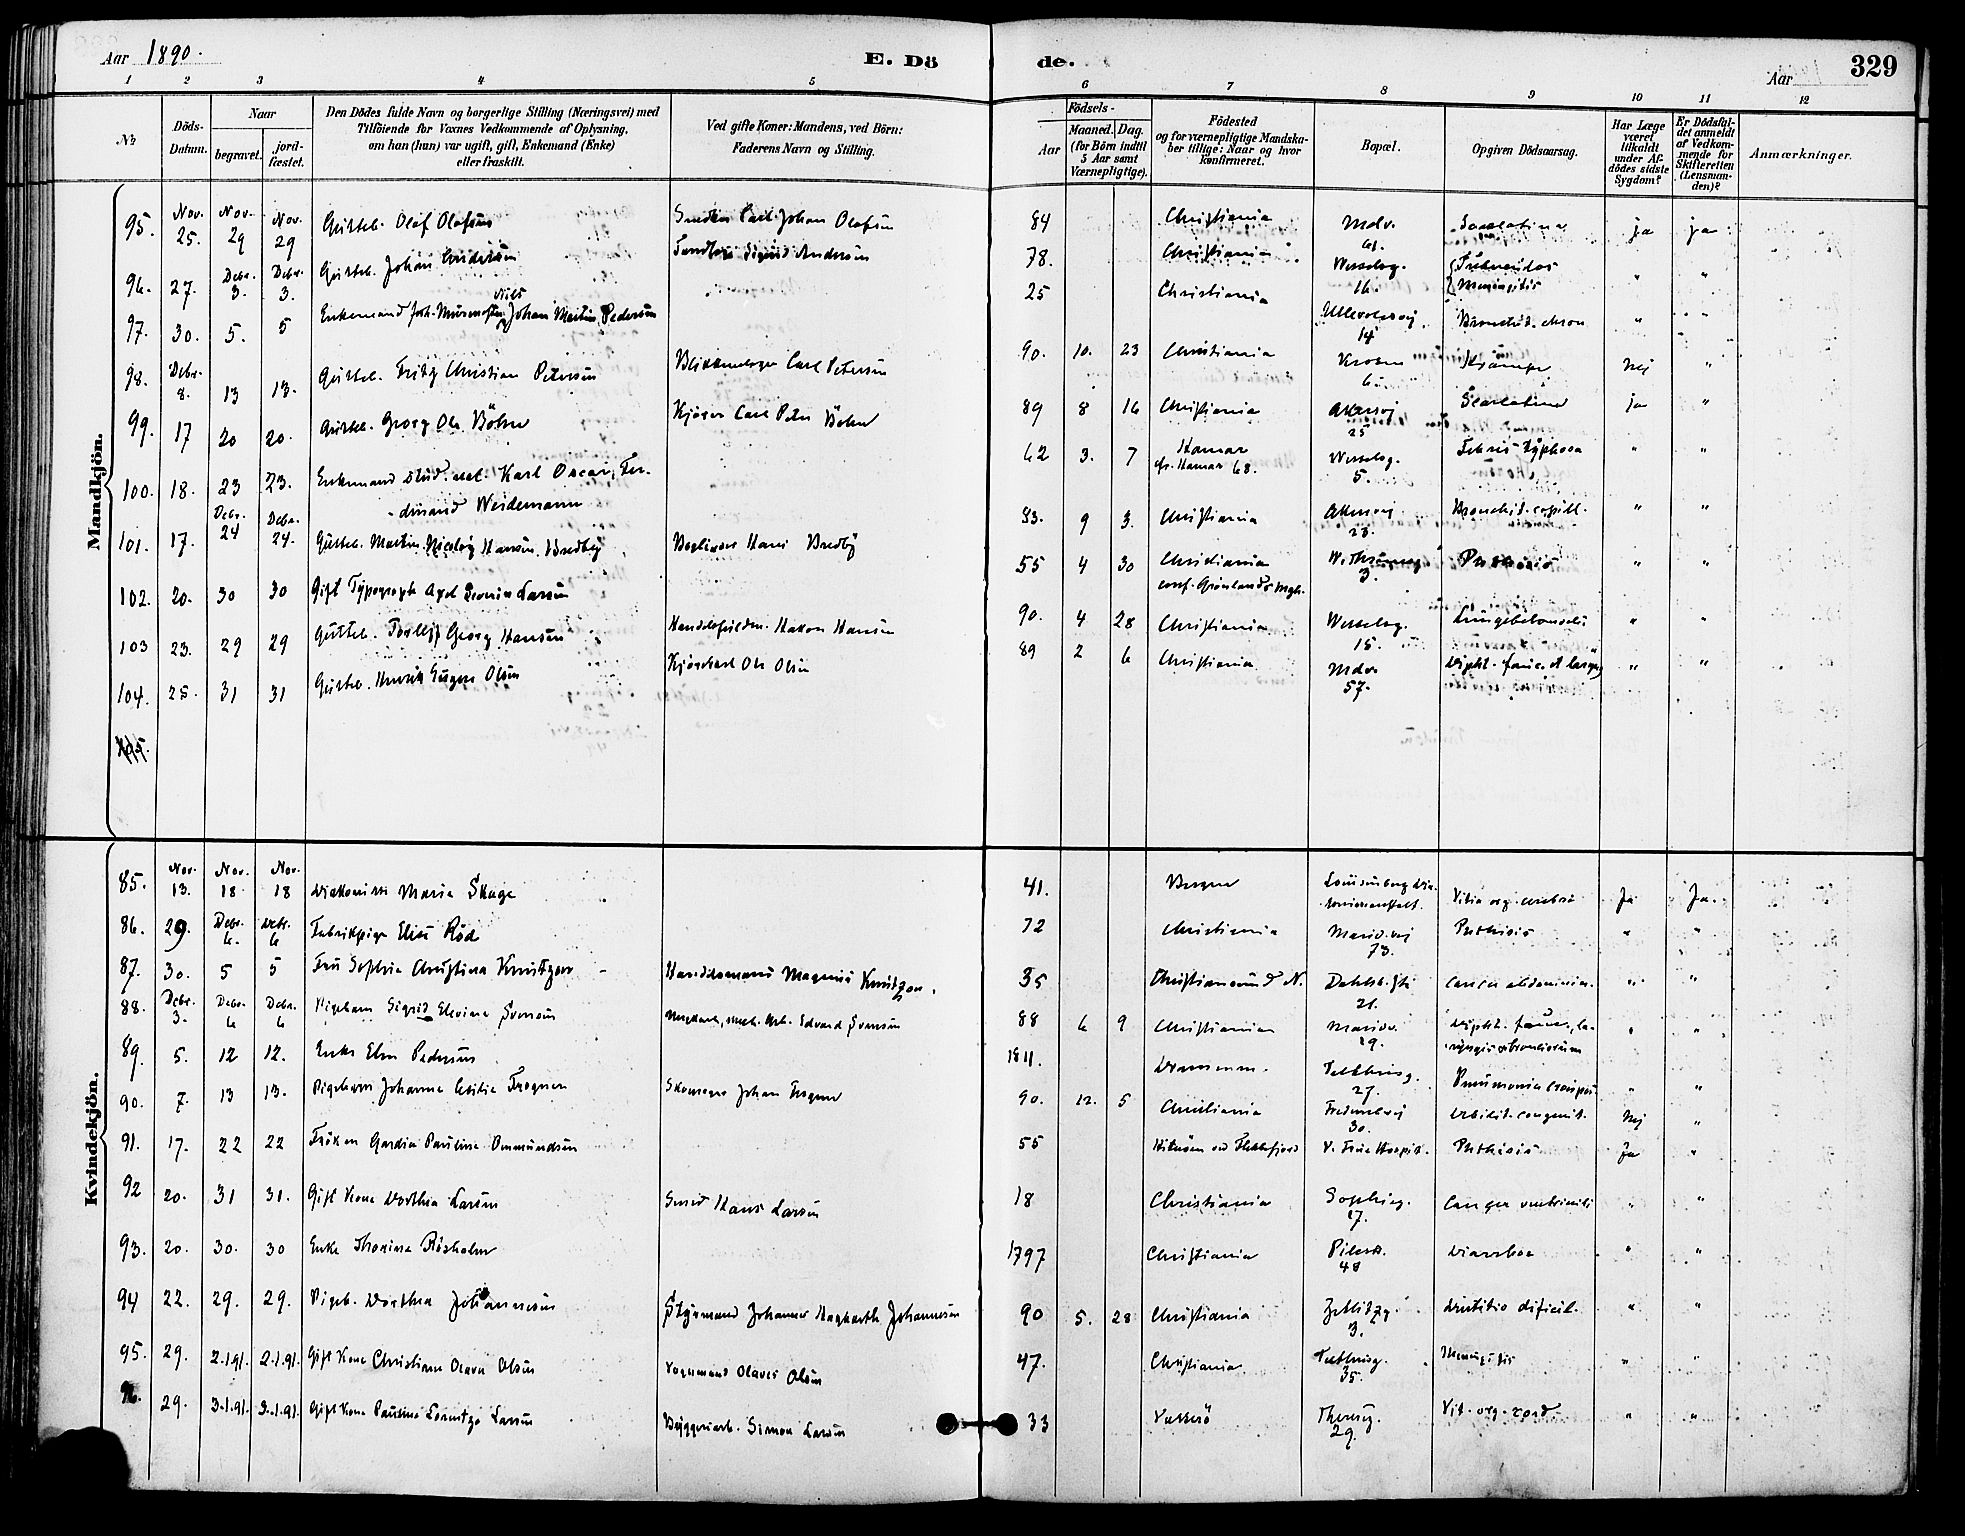 Aar 1890.
E. Döde.
Aar
329
1 2 3 4 5 6 7 8 9 10 11 12
№
Döds-Datum.
Naar
begravet.
jord-fæstet.
Den Dödes fulde Navn og borgerlige Stilling (Næringsvei) med
Tilföiende for Voxnes Vedkommende af Oplysning,
om han (hun) var ugift, gift, Enkemand (Enke)
eller fraskilt.
Ved gifte Koner: Mandens, ved Börn:
Faderens Navn og Stilling.
Födsels-
Aar
Maaned. Dag.
(for Börn indtil
5 Aar samt
Værnepligtige).
Födested
og for værnepligtige Mandska-
ber tillige: Naar og hvor
konfirmeret.
Bopæl.
Opgiven Dödsaarsag.
Har Læge
været
tilkaldt
under Af-
dödes sidste
Sygdom?
Er Dödsfal-
det anmeldt
af Vedkom-
mende for
Skifteretten
(Lensman-
den)?
Anmærkninger.
Mandkjön.
95. Nov. 25. Nov. 29 Nov. 29 Gutteb. Olaf Olafsen Carl Johan Olafsen 84 Christiania 61. Scarlatina ja ja
96. 27. Debr. 3. Debr. 3. Gutteb. Johan Andersen Sigurd Andersen 78. Christiania Wesselsg. 16. Tuberculos Meningitis " "
97. 30. 5. 5 Enkemand Niels Johan Martin Pedersen 25 Christiania Ullevolsvej 14 Bronchit. chron " "
98. Debr. 8. 13 13. Gutteb. Fritz Christian Petersen Blikkenslager Carl Petersen 90. 10. 23 Christiania 6 Krampe Nej "
99. 17 20 20. Gutteb. Georg Ole Böhn Kjører Carl Peter Böhn 89 8 16 Christiania Akersvej 25 Scarlatina ja "
100. 18. 23 23. Enkemand stud. Karl Oscar Fer-
dinand Weidemann 62 3. 7 Hamar Hamar 68. Wesselsg. 5. Febris typhosa " "
101. 17. Debr. 24 Debr. 24. Gutteb. Martin Nicolay Hansen Bredby Hans Bredby 83. 9 3. Christiania Akersvej 23. Bronchit. capill. " "
102. 20. 30 30 Gift Typograph Axel Larsen 55 4 30 Christiania conf. Grönlands Mgh. 3. Phthisis " "
103 23. 29 29 Gutteb. Georg Hansen Hakon Hansen 90. 4 28 Christiania Wesselsg. 15. Lungebetændelse " "
104. 25. 31 31 Gutteb. Henrik Eugen Olsen Kjörekarl Ole Olsen 89 2 6 Christiania 57. Dipht. fauc. et laryng " "
105.
Kvindekjön.
85. Nov. 13. Nov. 18 Nov. 18 Diakonisse Maria Skage 41. Bergen Vitia org. cerebri Ja Ja.
86. 29. Debr. 6. Debr. 6 Fabrikpige Elise Röd 72 Christiania Marid.vej 73. Phthisis " "
87. 30. 5 5 Fru Sophia Christina Knutzon Handelsmand Magnus Knutzon. 35 Christiansund N. 21. Cancer abdominis. " "
88. Debr. 3. Debr. 6 Debr. 6 Pigebarn Sigrid Elevine Svensen Edvard Svensen 88 6 9 Christiania Maridv. 19. Dipht. fauc., la-
ryngis " "
89. 5. 12 12. Enke Elen Pedersen 1811. Drammen. 27. Pneumonia crouposa " "
90. 7. 13 13. Pigebarn Johanne Cecilie Frogner Skomager Johan Frogner 90. 12. 5 Christiania 30. Debilit. congenit. Nej "
91. 17. 22 22 Fröken Gardia Pauline Ommundsen 55 ved Flekkefjord V. Frue Hospit. Phthisis Ja "
92 20. 31 31. Gift Kone Dorthea Larsen Hans Larsen 18 Christiania Sophieg. 17. Cancer ventriculi " "
93. 20. 30. 30 Enke Rosholm 1797 Christiania Pilestr. 48 Diarrhoe " "
94 22. 29. 29. Pigeb. Dorthea Johannesen Styrmand Johannes Hagbarth Johannesen 90 5. 28 Christiania Zetlitzg. 3. Dentitio dificil. " "
95. 29. 2.1.91. 2.1.91. Gift Kone Christiane Olava Olsen Vognmand Olaves Olsen 47. Christiania 35. Meningitis " "
29. 3.1.91. 3.1.91. Gift Kone Pauline Lorentze Larsen Bryggeriarb. Simon Larsen 33 29. Vit. org. cord. " "